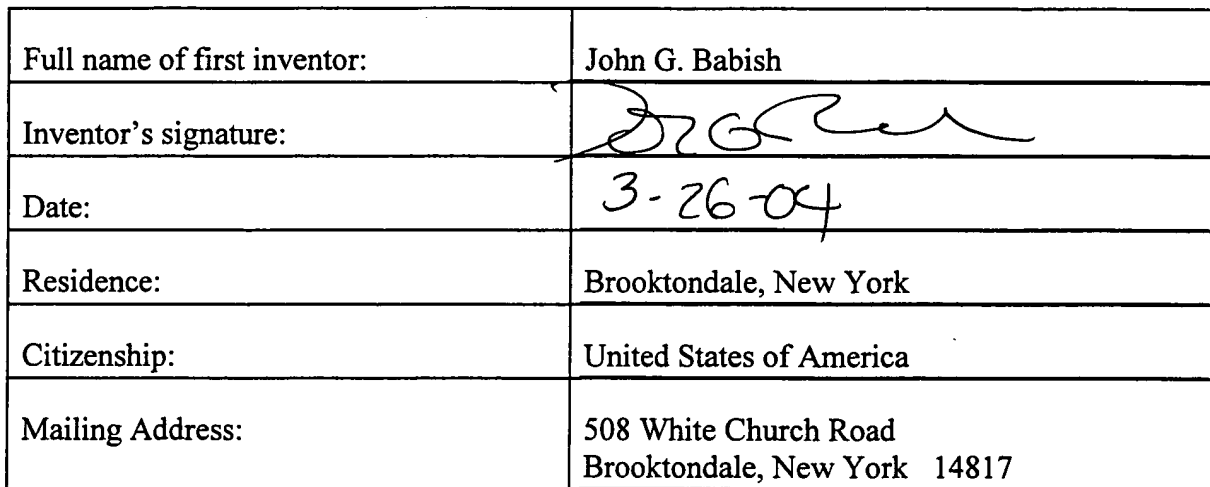 Full name of first inventor: John G. Babish
Inventor's signature:
Date: 3-26-04
Residence: Brooktondale, New York
Citizenship: United States of America
Mailing Address: 508 White Church Road
Brooktondale, New York 14817